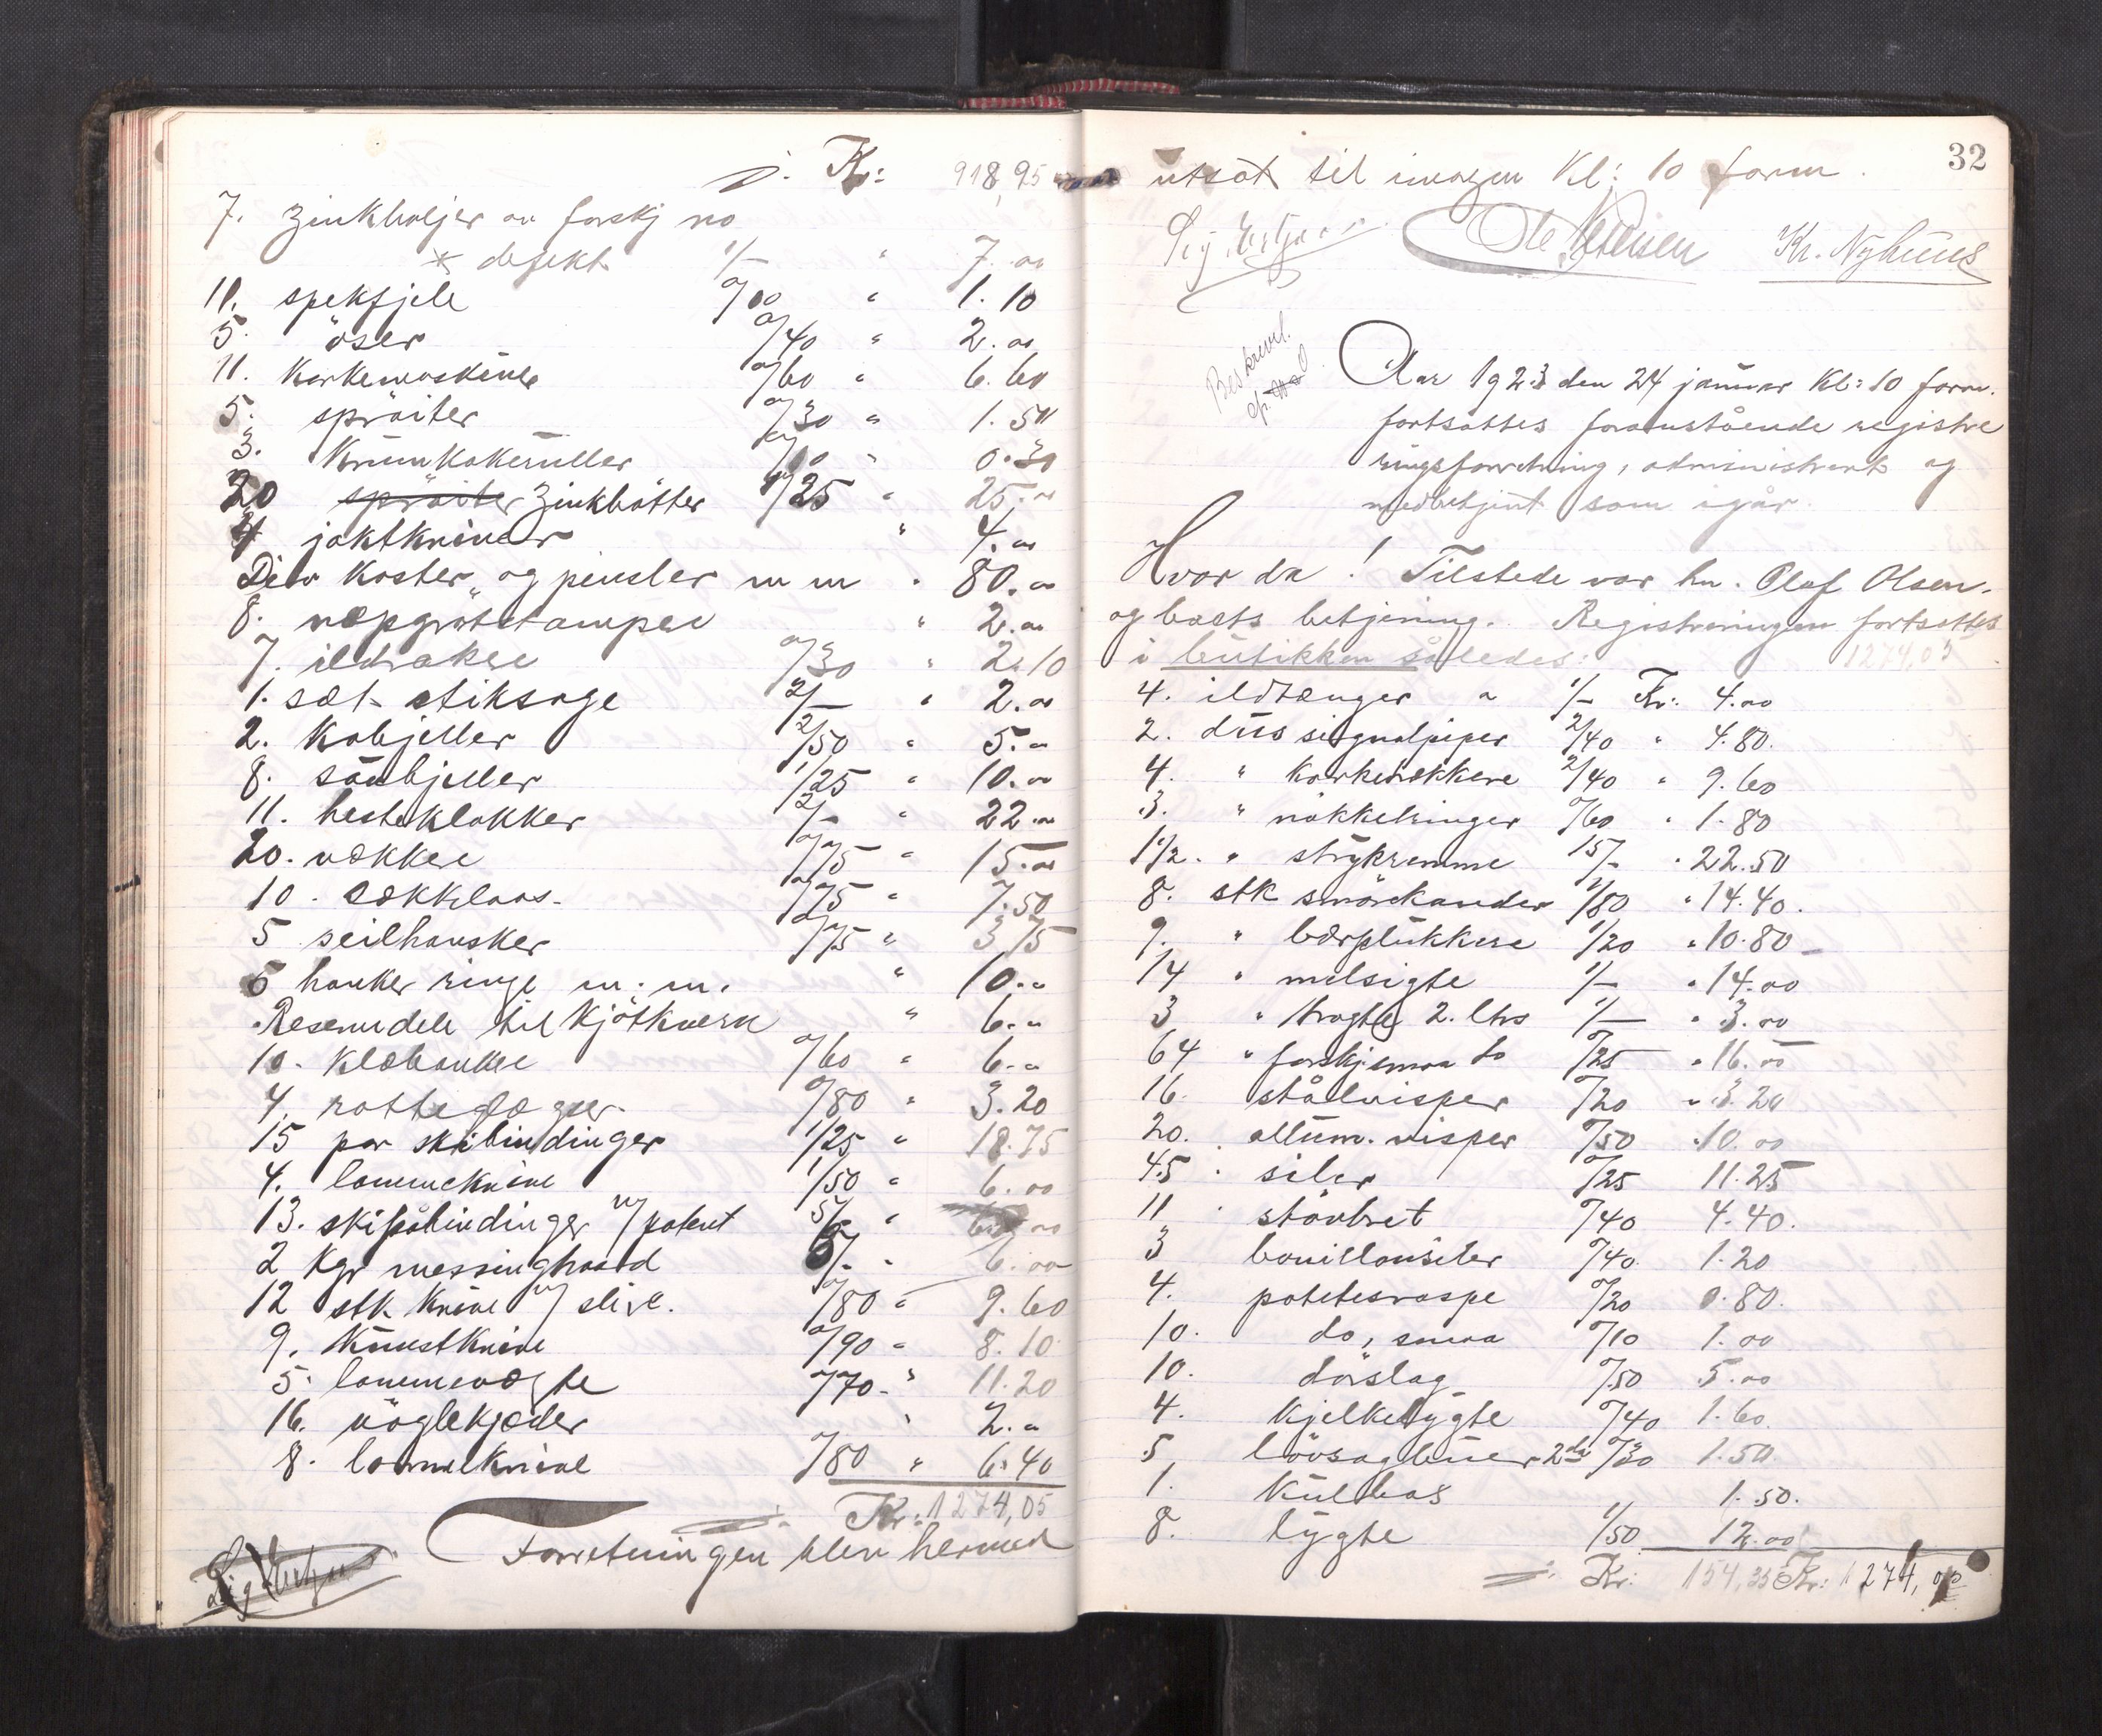 Kr: 918,95
7. zinkbaljer av forskj no
defekt 1/- " 7.00
11. spekfjele 0/10 " 1.10
5. öser 0/40 " 2.00
11. Korkemaskiner 0/60 " 6.60
5. spröiter 0/30 " 1.50
3. Krumkakeruller 0/10 " 0.30
20 spröiter zinkbötter 1/25 " 25.00
4 jaktkniver " 4.00
Div Koster og pensler m m " 80.00
8. " 2.00
7. ildrakere 0/30 " 2.10
1. sæt stiksage 2/- " 2.00
2. Kobjeller 2/50 " 5.00
8. saubjeller 1/25 " 10.00
11. hesteklokker 2/- " 22.00
20. vækkere 0/75 " 15.00
10. sækklaas 0/75 " 7.50
5 seilhansker 0/75 " 3.75
5 hanker ringe m.m. " 10.00
Reservedele til Kjötkvern " 6.00
10. 0/60 " 6.00
4. rottefælger 0/80 " 3.20
15 par skibindinger 1/25 " 18.75
4. lommeknive 1/50 " 6.00
13. skibindinger m/ patent 5/- "
2 Kgr messingtraad " 6.00
12 stk knive m/ slire. 0/80 " 9.60
9. Kunstknive 0/90 " 8.10
5. lommevægte 770 " 11.20
16. nöglekjæder " 2.00
8. lommeknive 0/80 " 6.40
Kr: 1274,05
Forretningen blev hermed
32
utsat til imorgen Kl: 10 form.
Kr. Nyhuus
Aar 1923 den 24 januar Kl: 10 form.
fortsattes foranstående registre
ringsforretning, administrert og
medbetjent som igår.
Hvor da! Tilstede var hr. Olaf Olsen.
og boets betjening. Registreringen fortsattes
i butikken således: 1274,05
4. ildtænger a 1/- Kr: 4.00
2. dus signalpiper 2/40 " 4.80.
4. " Korketrækkere 2/40 " 9.60
3. " nökkelringer 0/60 " 1.80
1 1/2. " strykremme 15/- " 22.50
8. stk smörkander 1/80 " 14.40.
9. " bærplukkere 1/20 " 10.80
14 " melsigte 1/- " 14.00
3 " tragte 2. ltrs 1/- " 3.00
64 " forskj smaa do 0/25 " 16.00
16. stålvisper 0/20 " 3.20
20. allum. visper 0/50 " 10.00
45 " siler 0/25 11.25
11 " stövbret 0/40 4.40.
3 bouillonsiler 0/40 1.20
4. potetesraspe 0/20 0.80.
10. do, smaa 0/10 1.00
10. dörslag 0/50 5.00
4. Kjelkelygte 0/40 1.60.
5 lövsagbuer 0/30 1.50
1. Kulboks 1.50.
8. lygte 1/50 12.00
Kr: 154,35 Kr: 1274,05